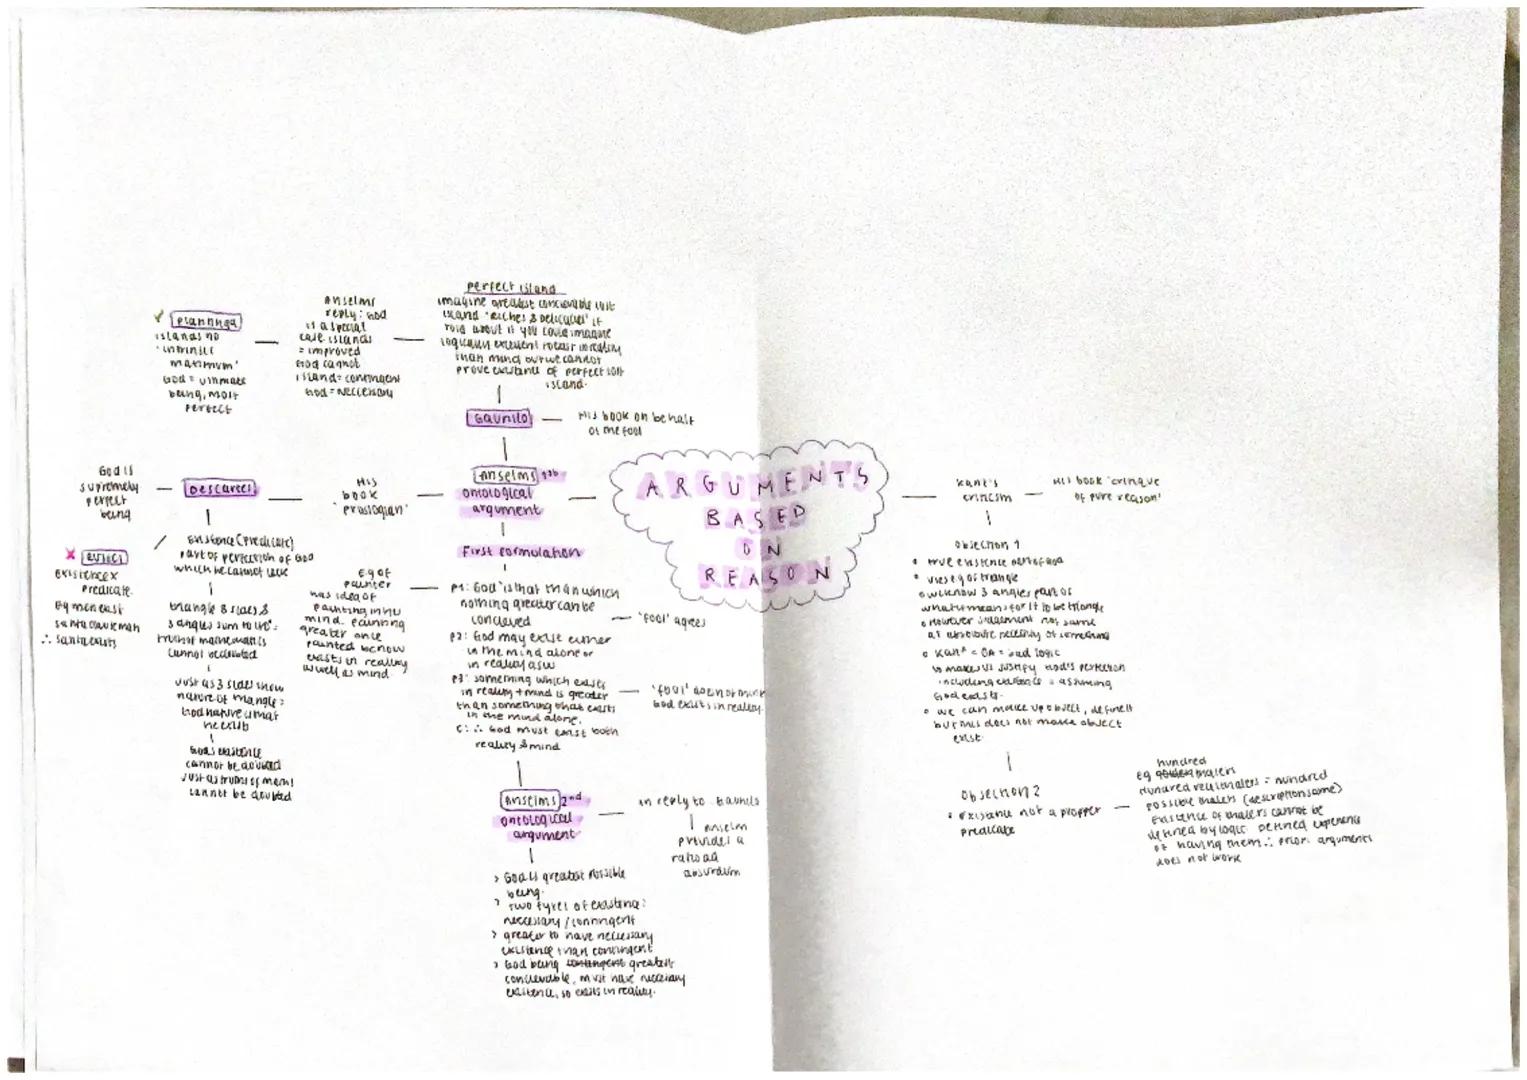 ARGUMENTS
BASED
ON
REASON
Anselms 1st
ontological
argument
His
book
'proslogian'
First formulation
P1: God 'is that than which
nothing greater can be
concieved
'fool' agrees
P2: God may exist either
in the mind alone or
in reality asw
P3: something which exists
in reality + mind is greater
than something that exists
in the mind alone.
'fool' does not think
God exists in reality.
C: ∴ God must exist both
reality & mind
eg of
painter
has idea of
painting in his
mind. painting
greater once
painted bc now
exists in reality
as well as mind
Gaunilo
His book on behalf
of the fool
perfect island
imagine greatest concievable lost
island 'riches & delicacies' if
told about it you could imagine
logically excellent to exist in reality
than mind but we cannot
prove existence of perfect lost
island.
Anselms
reply: God
is a special
case islands
= improved
God cannot
island = contingent
God = neccessary
Plantinga
islands no
'intrinsic
maximum'
God = ultimate
being, most
perfect
Descartes
God is
supremely
perfect
being
Existence (Predicate)
part of perfection of God
which he cannot lack
triangle 3 sides &
3 angles sum to 180°
truths of mathematics
cannot be doubted
Just as 3 sides show
nature of triangle
God nature is that
he exists
Gods existence
cannot be doubted
just as truths of maths
cannot be doubted
existence x
predicate.
Eg men exist
santa claus = man
∴ Santa exists
Anselms 2nd
ontological
argument
in reply to Gaunilo
Anselm
provides a
ratio ad
absurdum
> God is greatest possible
being.
> Two types of existence:
neccessary / contingent
> greater to have neccessary
existence than contingent
> God being contingent greatest
concievable, must have neccessary
existence, so exists in reality.
Kant's
criticism
His book 'critique
of pure reason'
Objection 1
• true existence part of God
• uses eg of triangle
• we know 3 angles part of
what it means for it to be triangle
• However judgement not same
as absolute necessity of something
• Kant = OA = bad logic
to makes us justify God's perfection
including existence = assuming
God exists.
• we can make up object, define it
but this does not make object
exist
Objection 2
• existence not a propper
predicate
hundred
eg thalers
Hundred real thalers = hundred
possible thalers (description same)
Existence of thalers cannot be
defined by logic. Defined experience
of having them ∴ priori arguments
does not work